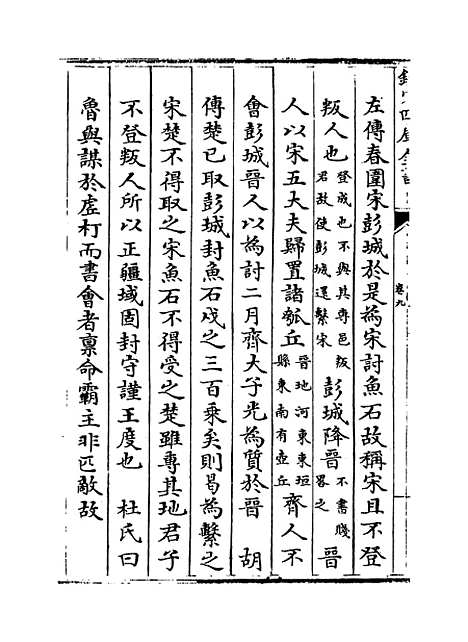 左傳春圍宋彭城於是為宋討魚石故稱宋且不登
叛人也登成也不與其專邑叛君故使彭城還繫宋彭城降晉不書賤畧之晉
人以宋五大夫歸置諸瓠丘晉地河東東垣縣東南有壺丘齊人不
會彭城晉人以為討二月齊大子光為質於晉　胡
傳楚已取彭城封魚石戍之三百乘矣則曷為繫之
宋楚不得取之宋魚石不得受之楚雖專其地君子
不登叛人所以正疆域固封守謹王度也　杜氏曰
魯與謀於虛朾而書會者禀命霸主非匹敵故
卷九